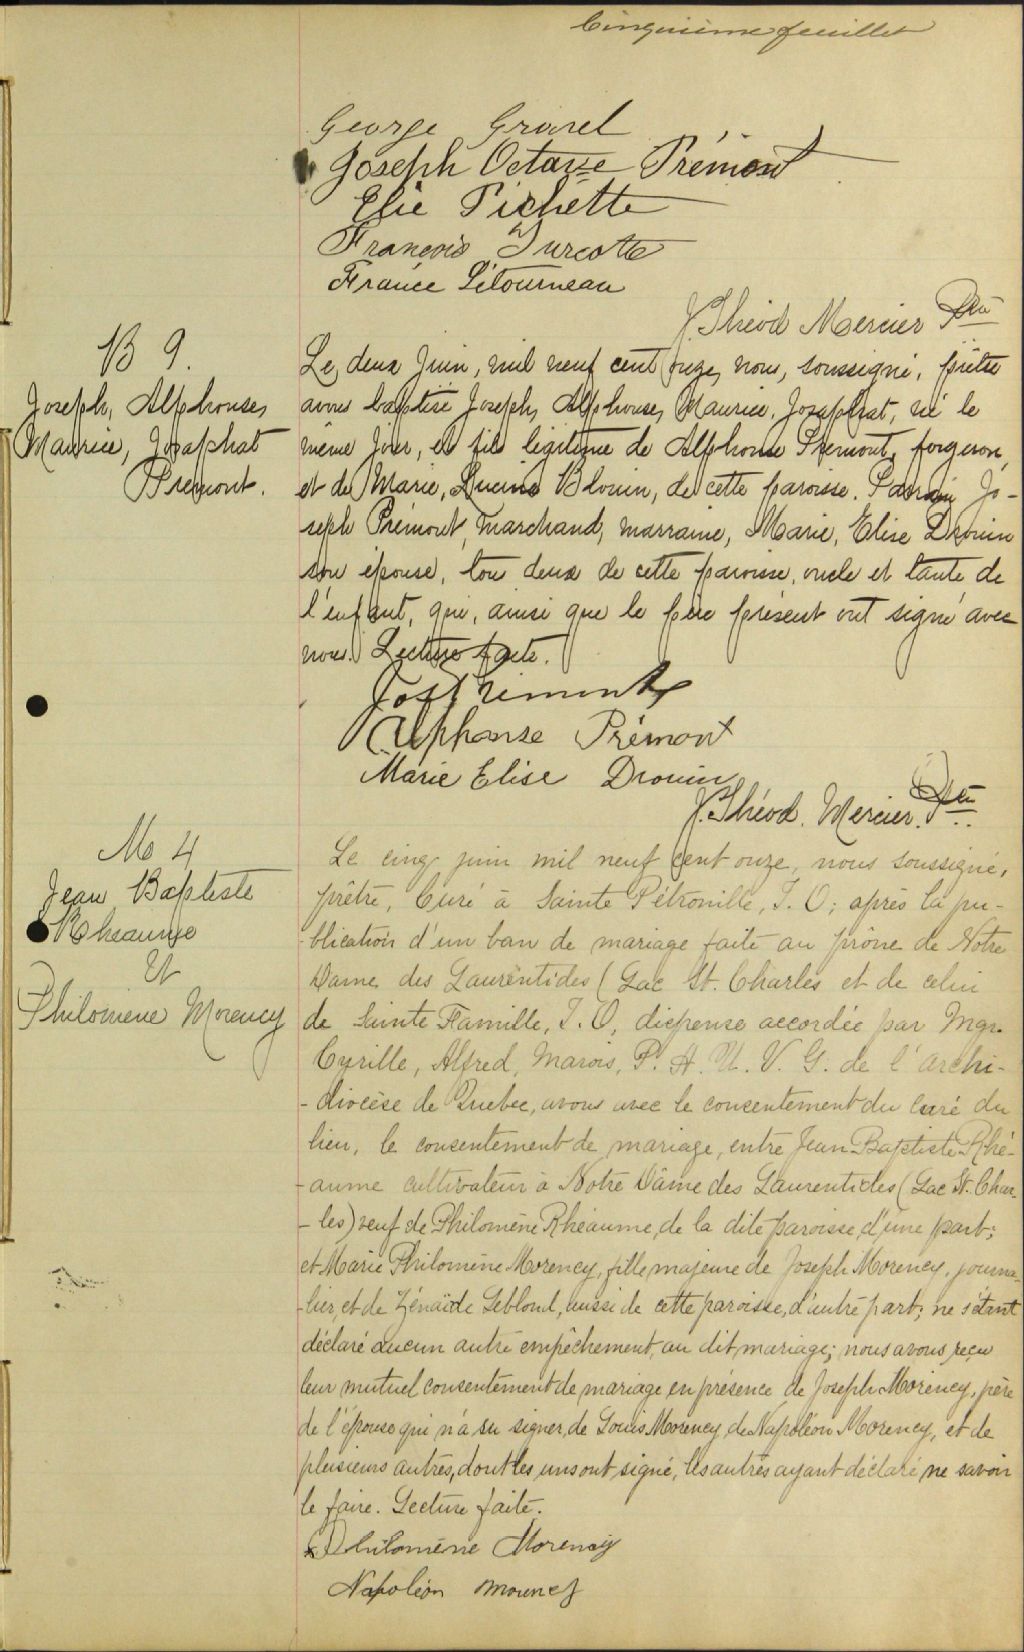 Cinquième feuillet
George Gravel
Joseph Octave Prémont
Elie Pichette
François Turcotte
France Létourneau
J. Théod Mercier Ptre
B 9.
Joseph, Alphonse,
Maurice, Josaphat
Premont.
Le deux Juin, mil neuf cent onze, nous, soussigné, prêtre
avons baptisé Joseph, Alphonse, Maurice, Josaphat, né le
même jour, fils légitime de Alphonse Premont, forgeron,
et de Marie, Blouin, de cette paroisse. Parrain Jo-
seph Prémont, marchand, marraine, Marie, Elise Drouin
son épouse, tou deux de cette paroisse, oncle et tante de
l'enfant, qui, ainsi que le père présent ont signé avec
nous. Lecture faite.
Jos Prémont
Alphonse Prémont
Marie Elise Drouin
J. Théod. Mercier. Ptre
M 4
Jean Baptiste
Rheaume
Et
Philomène Morency
Le cinq juin mil neuf cent onze, nous soussigné,
prêtre, Curé à Sainte Pétronille, I. O; après la pu-
-blication d'un ban de mariage faite au prône de Notre
Dame des Laurentides (Lac St. Charles et de celui
de Sainte Famille, I. O, dispense accordée par Mgr.
Cyrille, Alfred, Marois, P. A. U. V. G. de l'archi-
-diocèse de Quebec, avons avec le consentement du curé du
lieu, le consentement de mariage, entre Jean-Baptiste Rhé-
-aume cultivateur à Notre Dâme des Laurentides (Lac St. Char-
-les) veuf de Philomène Rhéaume, de la dite paroisse, d'une part;
et Marie Philomène Morency, fille majeure de Joseph Morency, journa-
-lier, et de Zénaïde Leblond, aussi de cette paroisse, d'autre part; ne s'étant
déclaré aucun autre empêchement, au dit mariage; nous avons reçu
leur mutuel consentement de mariage en présence de Joseph Morency, père
de l'épouse qui n'a su signer, de Louis Morency, de Napoléon Morency, et de
plusieurs autres, dont les uns ont signé, les autres ayant déclaré ne savoir
le faire. Lecture faite.
Philomène Morency
Napoléon